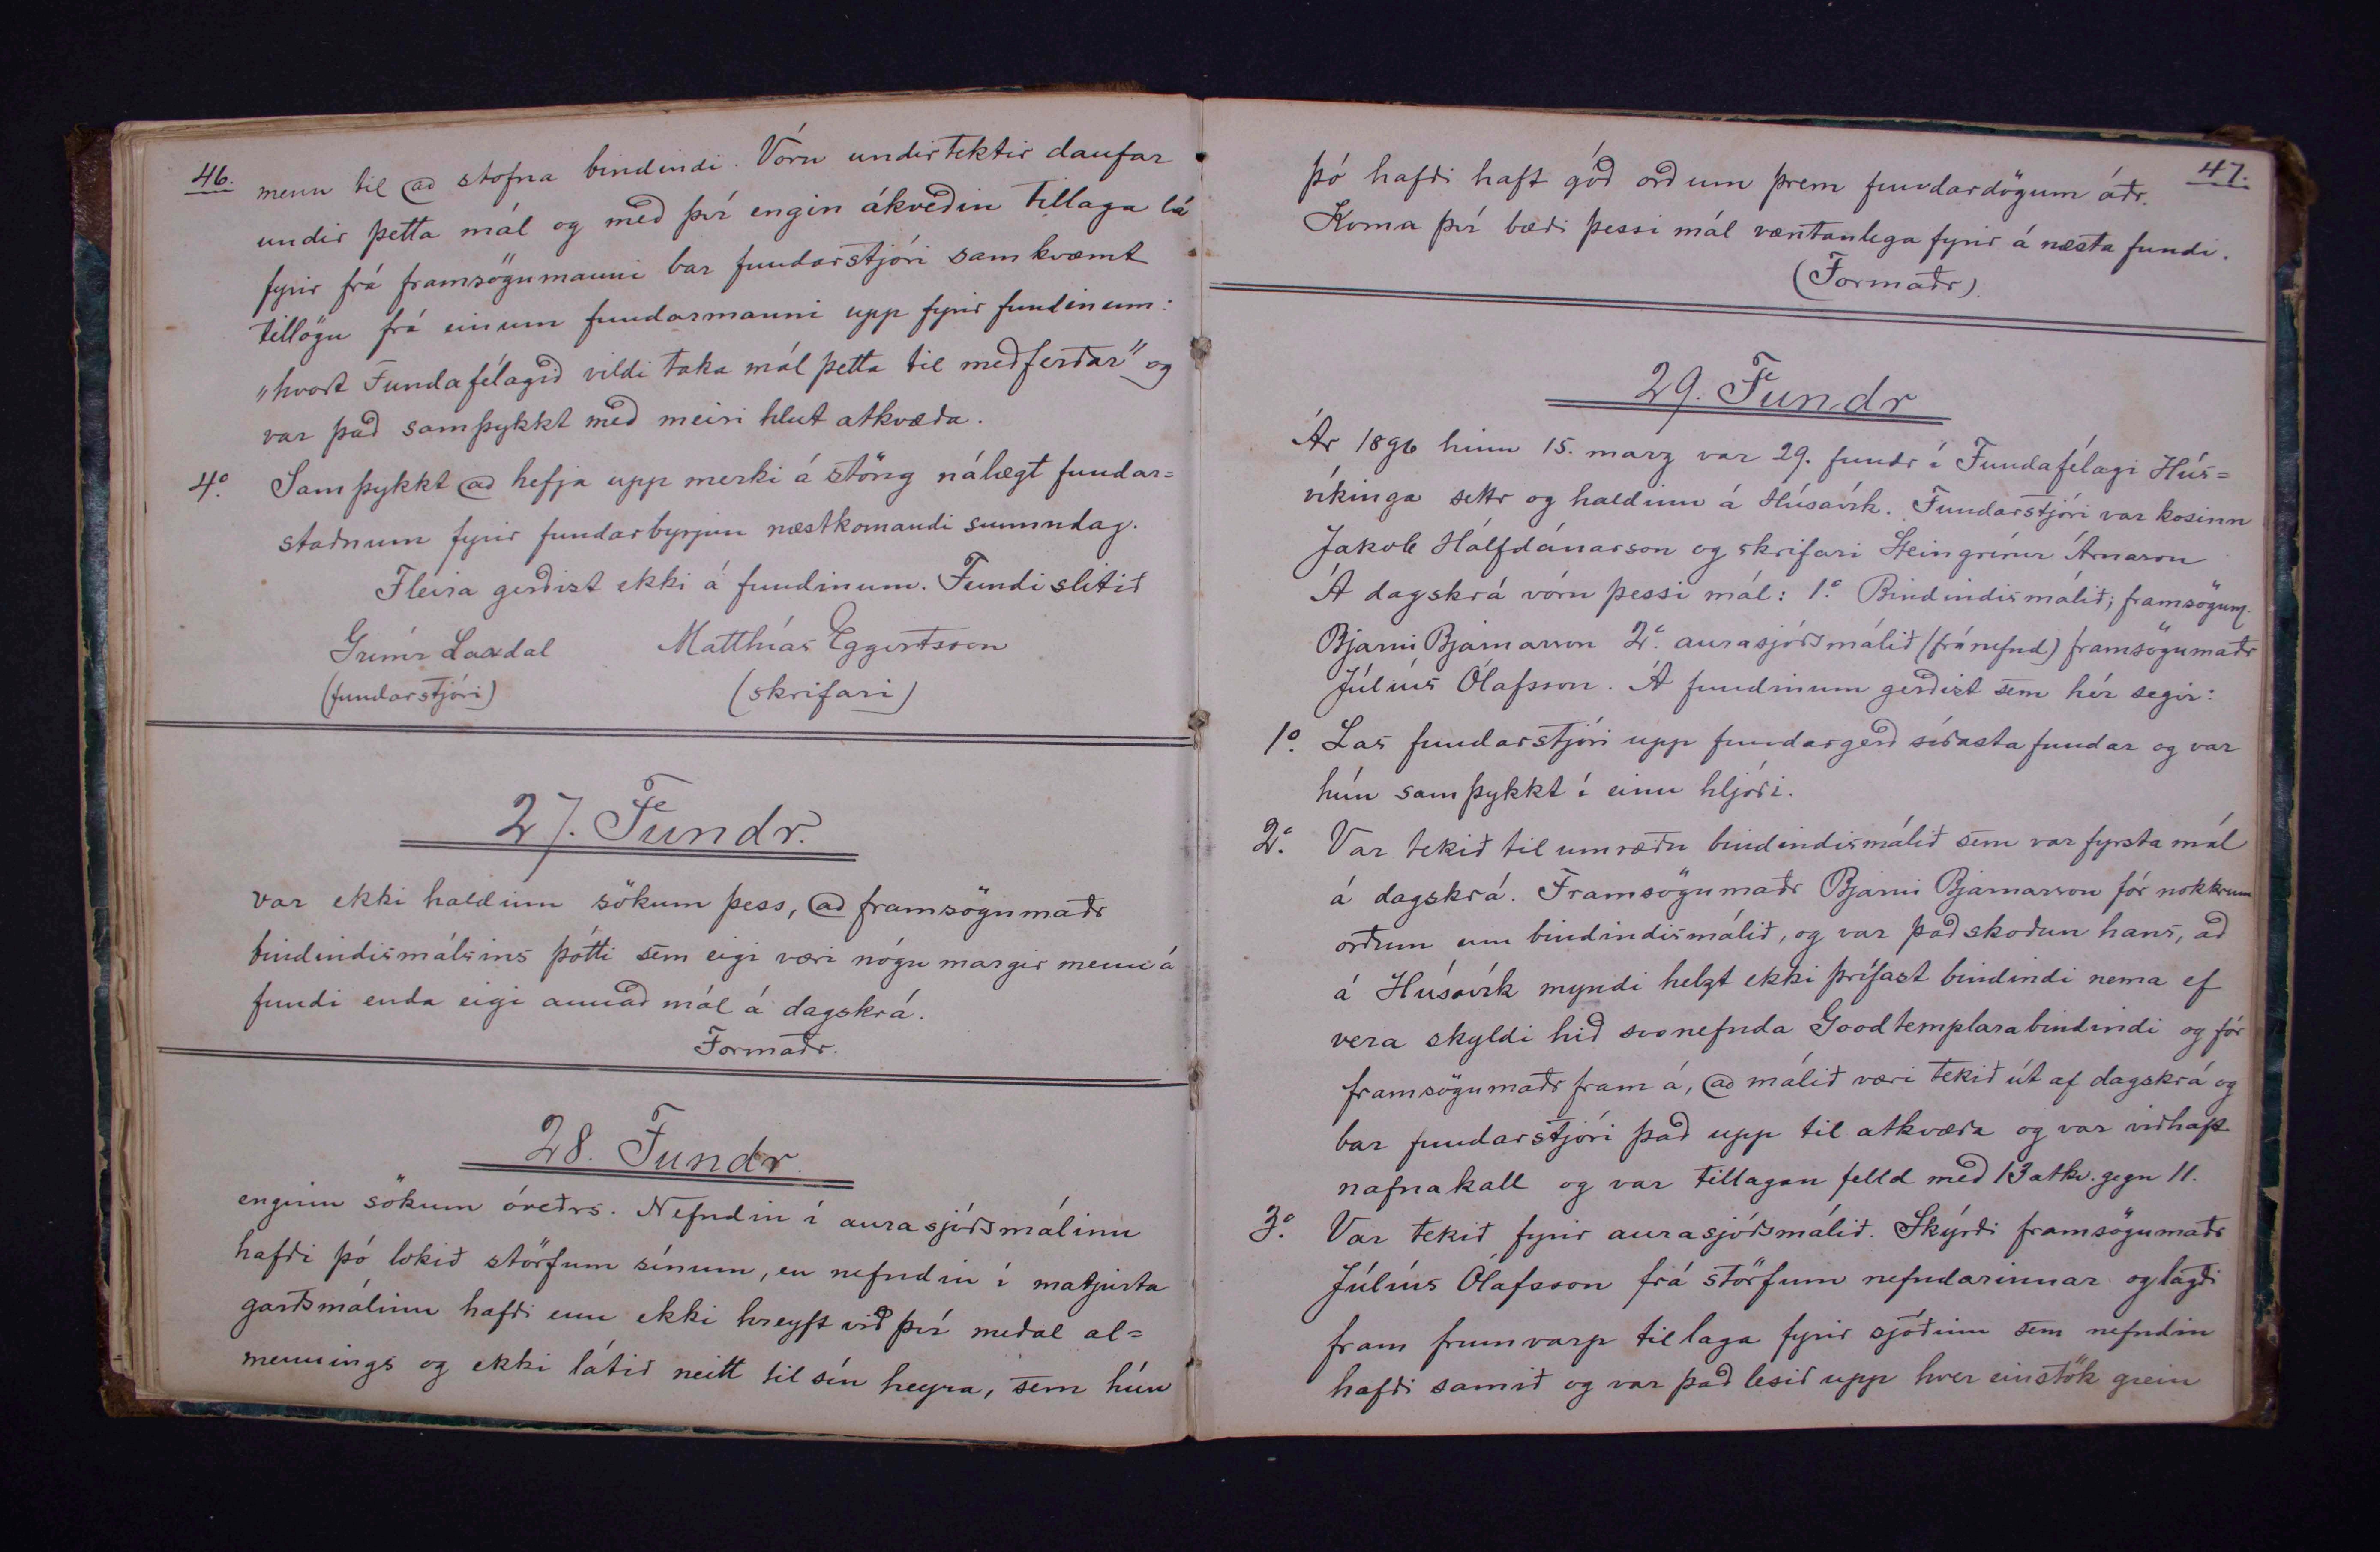 46.
menn til að stofna bindindi. Vóru undirtektir daufar
undir þetta mál og með því engin ákveðin tillaga lá
fyrir frá framsögumanni bar fundarstjóri samkvæmt
tillögu frá einum fundarmanni upp fyrir fundinum:
„hvort Fundafélagið vildi taka mál þetta til meðferðar" og
var það samþykkt með meiri hlut atkvæða.
4.º Samþykkt að hefja upp merki á stöng nálægt fundar=
staðnum fyrir fundarbyrjun næstkomandi sunnudag.
Fleira gerðist ekki á fundinum. Fundi slitið
Grímr Laxdal Matthías Eggertsson
(fundarstjóri) (skrifari)
27. Fundr.
var ekki haldinn sökum þess, að framsögumaðr
bindindismálsins þótti sem eigi væri nógu margir menn á
fundi enda eigi annað mál á dagskrá.
Formaðr.
28. Fundr.
enginn sökum óveðrs. Nefndin í aurasjóðsmálinu
hafði þó lokið störfum sínum, en nefndin í matjurta
garðsmálinu hafði enn ekki hreyft við því meðal al=
mennings og ekki látið neitt til sín heyra, sem hún
47.
þó hafði haft góð orð um þrem fundardögum áðr.
Koma því bæði þessi mál væntanlega fyrir á næsta fundi.
(Formaðr).
29. Fundr
Ár 1896 hinn 15. marz var 29. fundr í Fundafélagi Hús=
víkinga settr og haldinn á Húsavík. Fundarstjóri var kosinn
Jakob Hálfdánarson og skrifari Steingrímr Árnason
Á dagskrá vóru þessi mál: 1.º Bindindismálið; framsögum.
Bjarni Bjarnarson 2.º aurasjóðsmálið (frá nefnd) framsögumaðr
Júlíus Ólafsson. Á fundinum gerðist sem hér segir:
1.º Las fundarstjóri upp fundargerð síðasta fundar og var
hún samþykkt í einu hljóði.
2.º Var tekið til umræðu bindindismálið sem var fyrsta mál
á dagskrá. Framsögumaðr Bjarni Bjarnarson fór nokkrum
orðum um bindindismálið, og var það skoðun hans, að
á Húsavík myndi helzt ekki þrífast bindindi nema ef
vera skyldi hið svonefnda Goodtemplarabindindi og fór
framsögumaðr fram á, að málið væri tekið út af dagskrá og
bar fundarstjóri það upp til atkvæða og var viðhaft
nafnakall og var tillagan felld með 13 atkv. gegn 11.
3.º Var tekið fyrir aurasjóðsmálið. Skýrði framsögumaðr
Júlíus Ólafsson frá störfum nefndarinnar og lagði
fram frumvarp til laga fyrir sjóðinn sem nefndin
hafði samið og var það lesið upp hver einstök grein